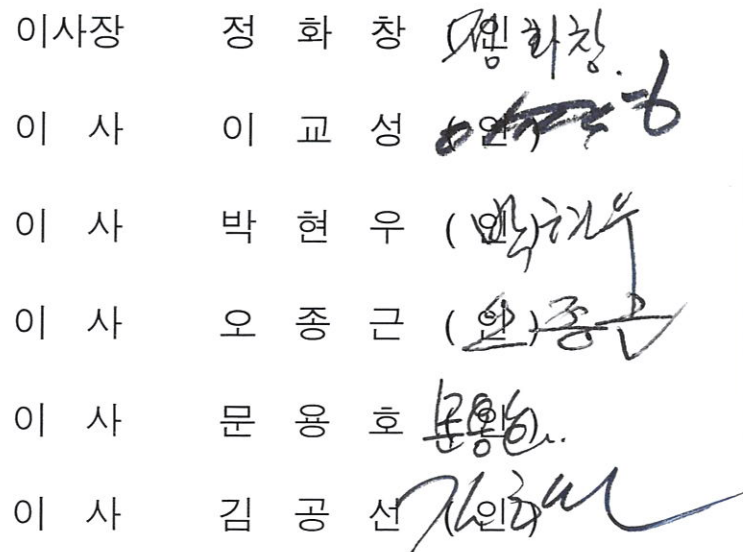 이사장 정 화 창 (인) 정화창
이 사 이 교 성 (인)
이 사 박 현 우 (인) 박현우
이 사 오 종 근 (인) 오종근
이 사 문 용 호 (인) 문용호
이 사 김 공 선 (인)